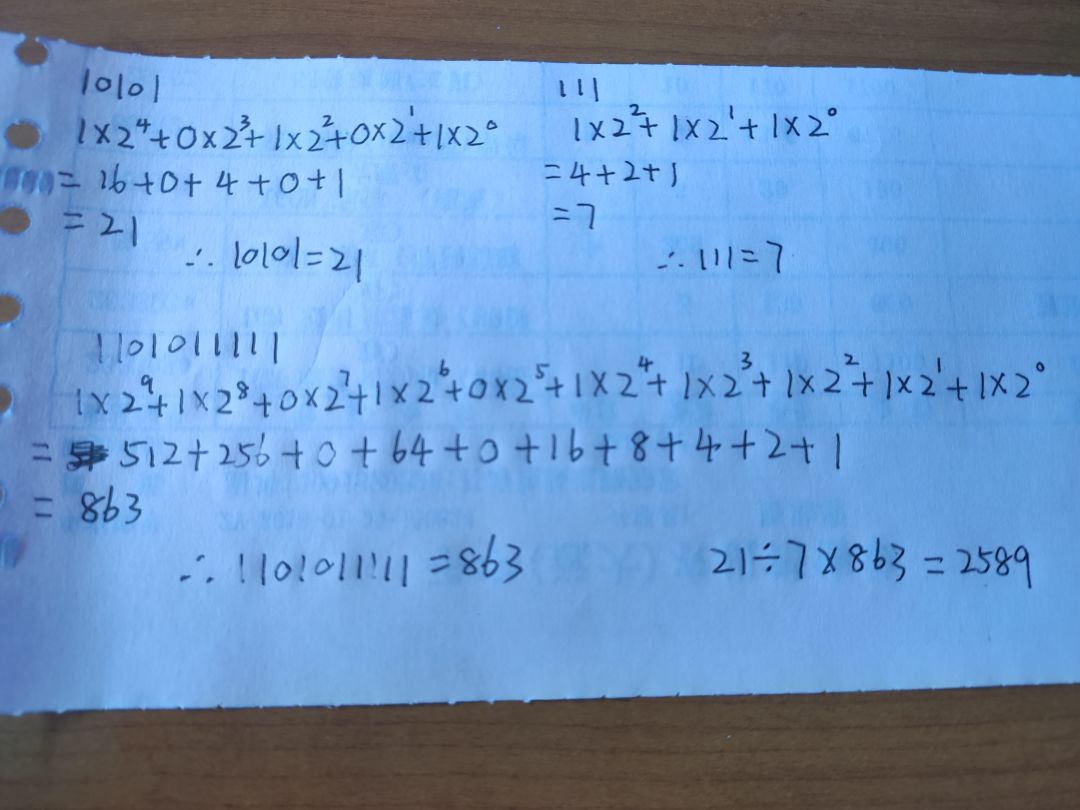 10101
1×2⁴+0×2³+1×2²+0×2¹+1×2⁰
=16+0+4+0+1
=21
∴10101=21
111
1×2²+1×2¹+1×2⁰
=4+2+1
=7
∴111=7
1101011111
1×2⁹+1×2⁸+0×2⁷+1×2⁶+0×2⁵+1×2⁴+1×2³+1×2²+1×2¹+1×2⁰
=512+256+0+64+0+16+8+4+2+1
=863
∴1101011111=863
21÷7×863=2589